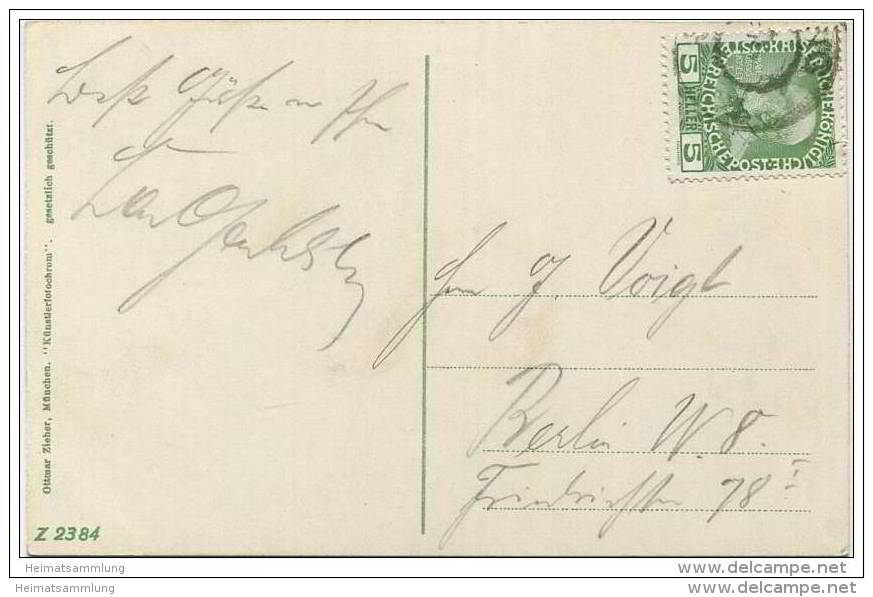 Beste Grüße an Ihn
Herrn J. Voigt
Berlin W. 8.
Friedrichstr 78 I
5 HELLER 5
KAISERLICHE KÖNIGLICHE
ÖSTERREICHISCHE POST
Ottmar Zieher, München. "Künstlerfotochrom". gesetzlich geschützt.
Z 2384
Heimatsammlung
www.delcampe.net
Heimatsammlung
www.delcampe.net